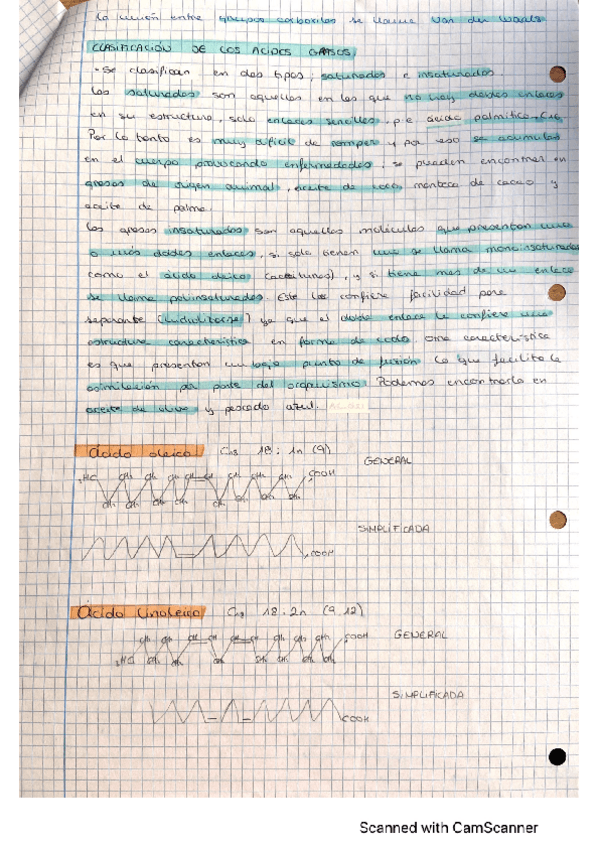 la unión entre grupos carboxilos se llama Van der Waals
CLASIFICACIÓN DE LOS ACIDOS GRASOS
- Se clasifican en dos tipos; saturados e insaturados
Los saturados son aquellos en los que no hay dobles enlaces
en su estructura, solo enlaces sencillos, p.e ácido palmítico, C16
Por lo tanto es muy dificil de romper y por eso se acumulas
en el cuerpo provocando enfermedades, se pueden encontrar en
grasas de origen animal, aceite de coco, manteca de cacao y
aceite de palma.
Las grasas insaturados son aquellas moleculas que presentan uno
o más dobles enlaces, si solo tienen uno se llama monoinsaturados
como el ácido oleico (aceitunas), y si tiene mas de un enlace
se llama poliinsaturados. Este les confiere facilidad para
separarse ya que el doble enlace le confiere una
estructura característica en forma de codo. Una característica
es que presentan un bajo punto de fusión lo que facilita la
asimilación por parte del organismo. Podemos encontrarla en
aceite de oliva y pescado azul.
Ácido oleico C18 18:1n (9)
GENERAL
3HC CH2 CH2 CH2 CH CH CH2 CH2 CH2 COOH
CH2 CH2 CH2 CH2 CH2 CH2 CH2
SIMPLIFICADA
COOH
Ácido Linoleico C18 18:2n (9,12)
CH2 CH2 CH CH CH CH CH2 CH2 CH2 COOH GENERAL
3HC CH2 CH2 CH2 CH2 CH2 CH2 CH2
SIMPLIFICADA
COOH
Scanned with CamScanner